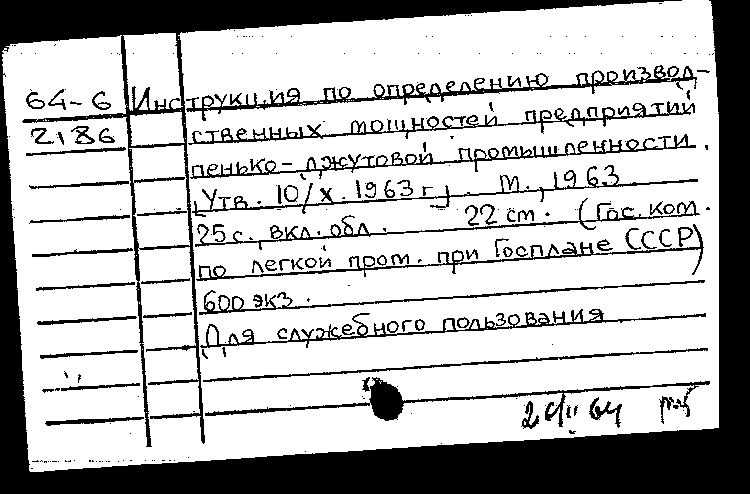 64-6 Инструкция по определению производ-
2186 ственных мощностей предприятий
пенько-джутовой промышленности.
[Утв. 10/X.1963г]. М., 1963.
25с., вкл. обл. 22 см. (Гос. ком.
по легкой пром. при Госплане СССР)
600 экз.
Для служебного пользования